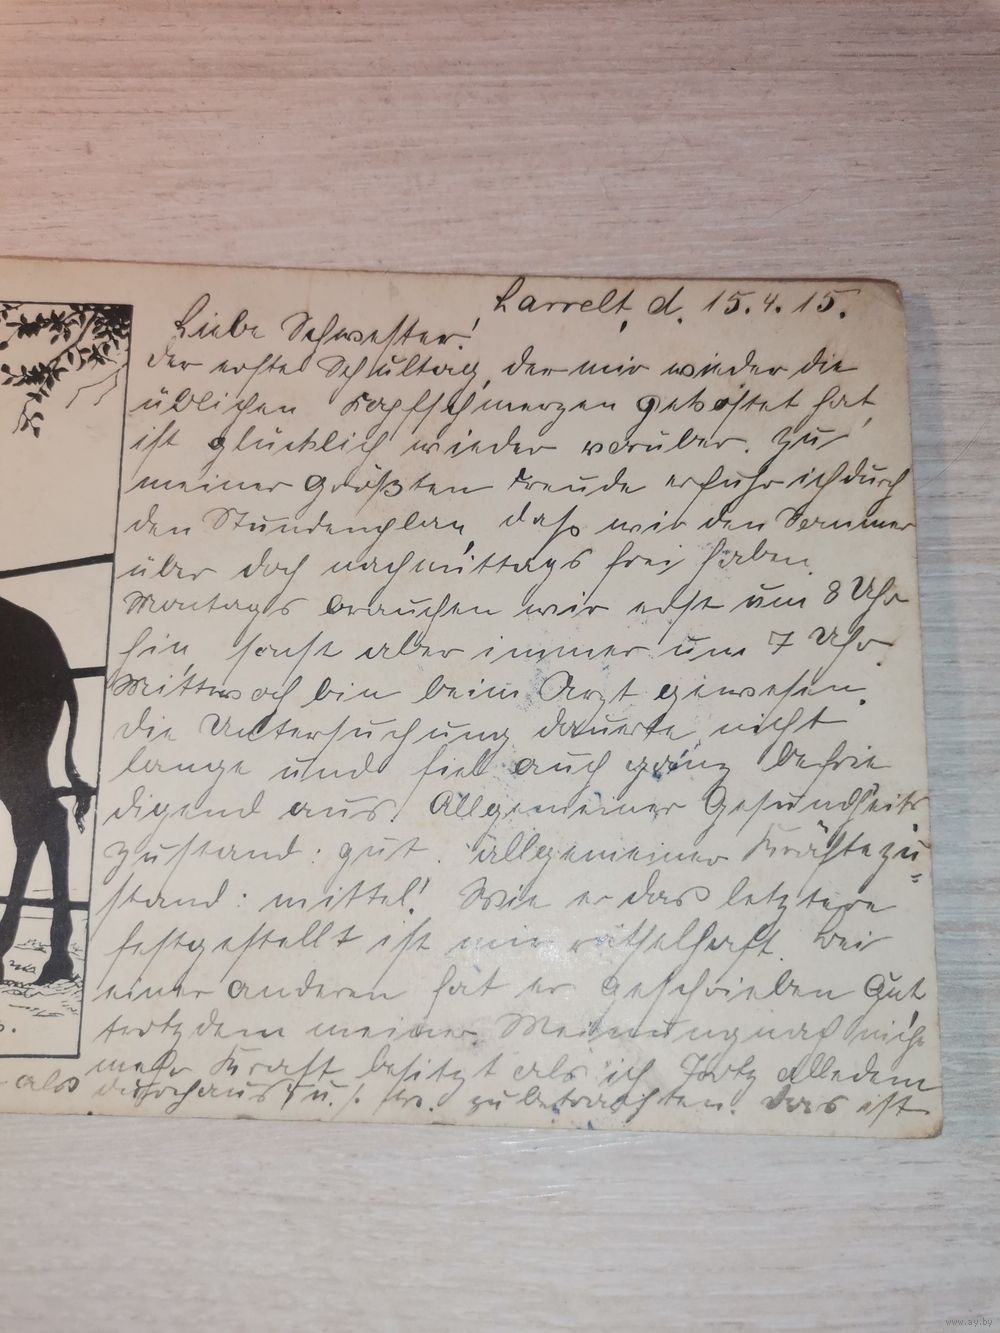 Larrelt, d. 15.4.15.
Liebe Schwester!
Der erste Schultag, der mir wieder die
üblichen Kopfschmerzen gekostet hat,
ist glücklich wieder vorüber. Zu
meiner größten Freude erfuhr ich durch
den Stundenplan, daß wir den Sommer
über doch nachmittags frei haben.
Montags brauchen wir erst um 8 Uhr
hin, sonst aber immer um 7 Uhr.
Mittwoch bin beim Arzt gewesen.
Die Untersuchung dauerte nicht
lange und fiel auch ganz befrie
digend aus. Allgemeiner Gesundheits
zustand: gut. Allgemeiner Kräftezu=
stand: mittel! Wie er das letztere
festgestellt ist mir rätselhaft. Bei
einer anderen hat er geschrieben Gut
trotzdem meiner Meinung nach nicht
mehr Kraft besitzt als ich Trotz alledem
als
zu betrachten. Das ist
www.ay.by